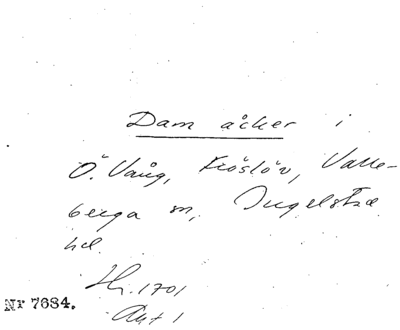 Dam åker i
Ö. Vång, Fröslöv, Valle-
berga sn, Ingelstad
hd.
Hr. 1701
Akt 1
Nr 7684.